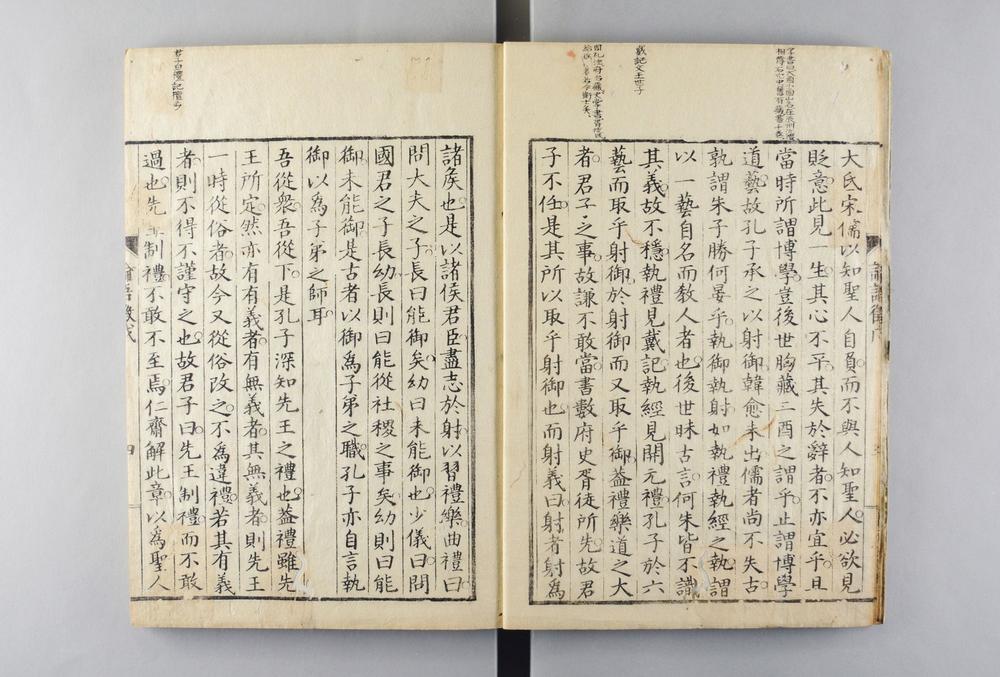 大氏宋儒以知聖人自負而不與人知聖人必欲見
貶意此見一生其心不平其失於辭者不亦宜乎且
當時所謂博學豈後世胸藏二酉之謂乎止謂博學
道藝故孔子承之以射御韓愈未出儒者尚不失古
孰謂朱子勝何晏乎執御執射如執禮執經之執謂
以一藝自名而敎人者也後世昧古言何朱皆不識
其義故不穩執禮見戴記執經見開元禮孔子於六
藝而取乎射御於射御而又取乎御葢禮樂道之大
者君子之事故謙不敢當書數府史胥徒所先故君
子不任是其所以取乎射御也而射義曰射者射爲
戴記文王世子
諸矦也是以諸侯君臣盡志於射以習禮樂曲禮曰
問大夫之子長曰能御矣幼曰未能御也少儀曰問
國君之子長幼長則曰能從社稷之事矣幼則曰能
御未能御是古者以御爲子弟之職孔子亦自言執
御以爲子弟之師耳
吾從衆吾從下是孔子深知先王之禮也葢禮雖先
王所定然亦有有義者有無義者其無義者則先王
一時從俗者故今又從俗改之不爲違禮若其有義
者則不得不謹守之也故君子曰先王制禮而不敢
過也先王制禮不敢不至焉仁齋解此章以爲聖人
君子曰禮記檀弓
論語徵戊
四